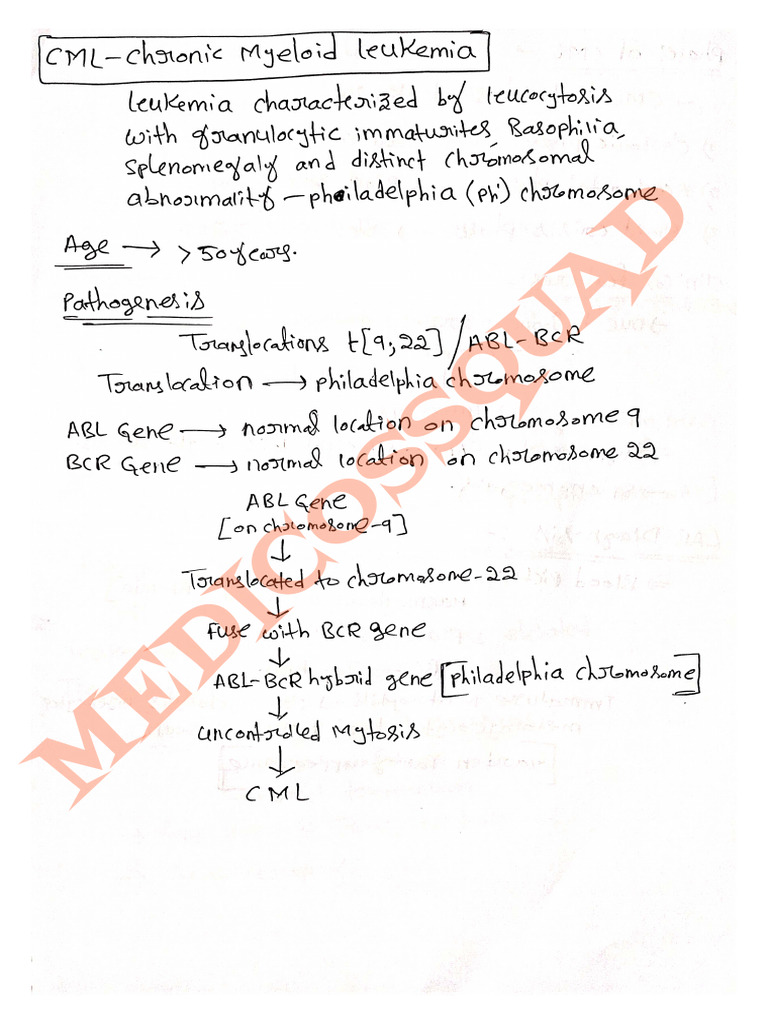 CML-Chronic Myeloid leukemia
leukemia characterized by leucocytosis
with granulocytic immaturites, Basophilia,
splenomegaly and distinct chromosomal
abnormality - philadelphia (Ph') chromosome
Age → > 50 years.
Pathogenesis
Translocations t[9;22] / ABL-BCR
Translocation → philadelphia chromosome
ABL Gene → normal location on chromosome 9
BCR Gene → normal location on chromosome 22
ABL Gene
[on chromosome-9]
↓
Translocated to chromosome-22
↓
Fuse with BCR gene
↓
ABL-BCR hybrid gene [philadelphia chromosome]
↓
uncontrolled Mytosis
↓
CML
MEDICOSSQUAD